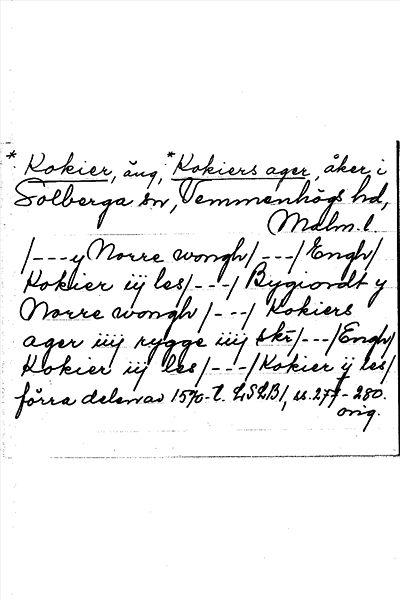 * Kokier, äng, * Kokiers ager, åker, i
Solberga sn, Vemmenhögs hd,
Malm. l
/---y Norre wongh/---/Engh/
Kokier iij les/---/Bygiordt y
Norre wongh/---/ Kokiers
ager iiij rygge iiij skr/---/Engh/
Kokier iij les/---/Kokier ij les/
förra delen av 1570-t. LSLB1, ss. 277-280.
orig.